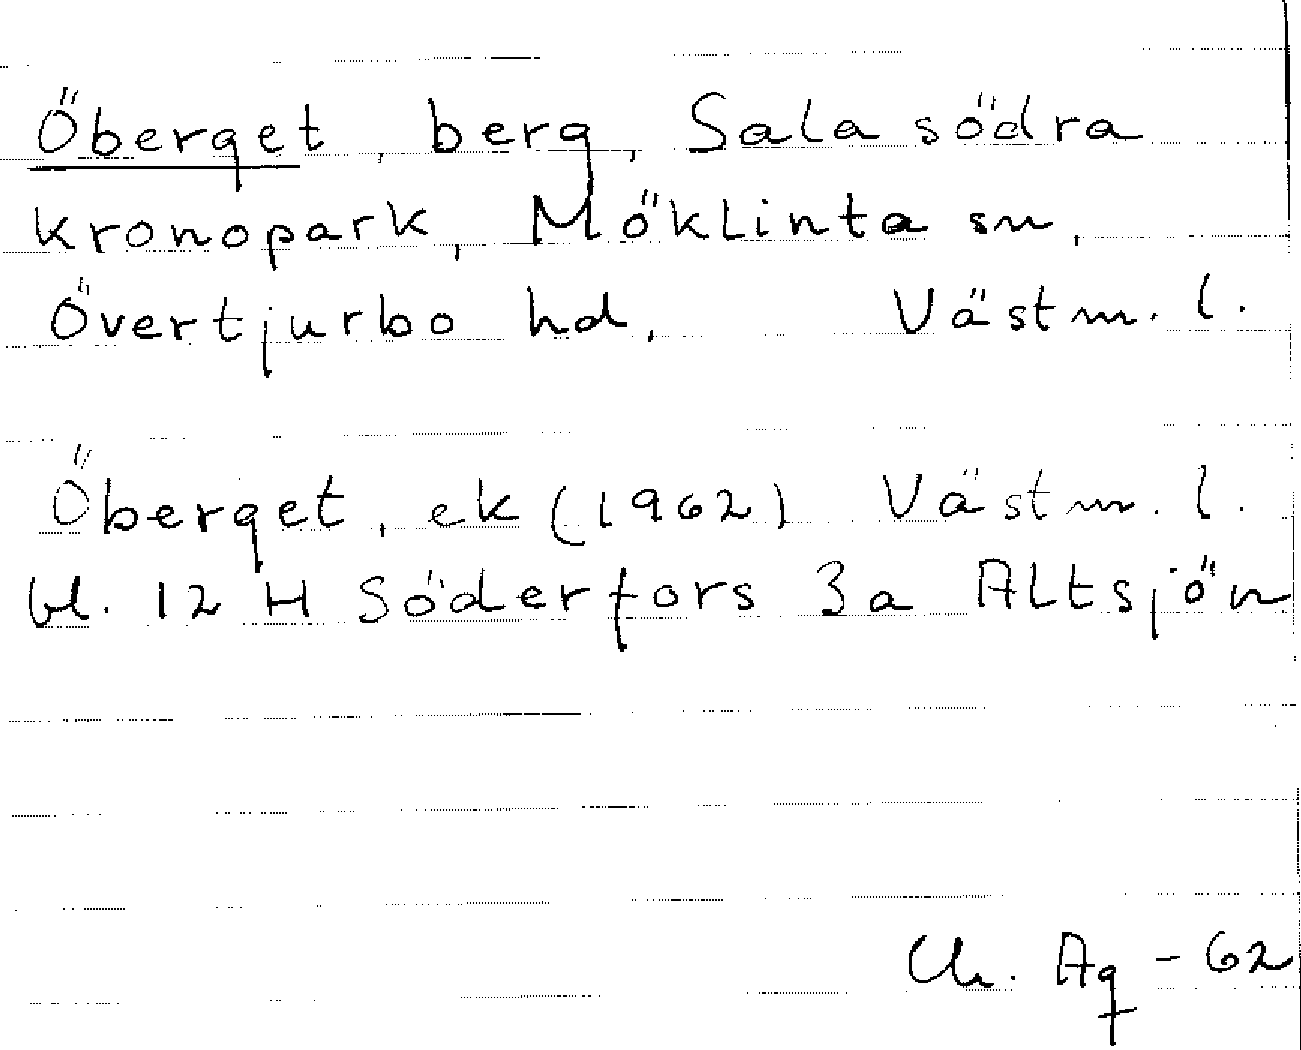 Öberget, berg, Sala södra
kronopark, Möklinta sn,
Övertjurbo hd, Västm. l.
Öberget, ek (1962) Västm. l.
bl. 12 H Söderfors 3a Altsjön
Ch. Ag - 62